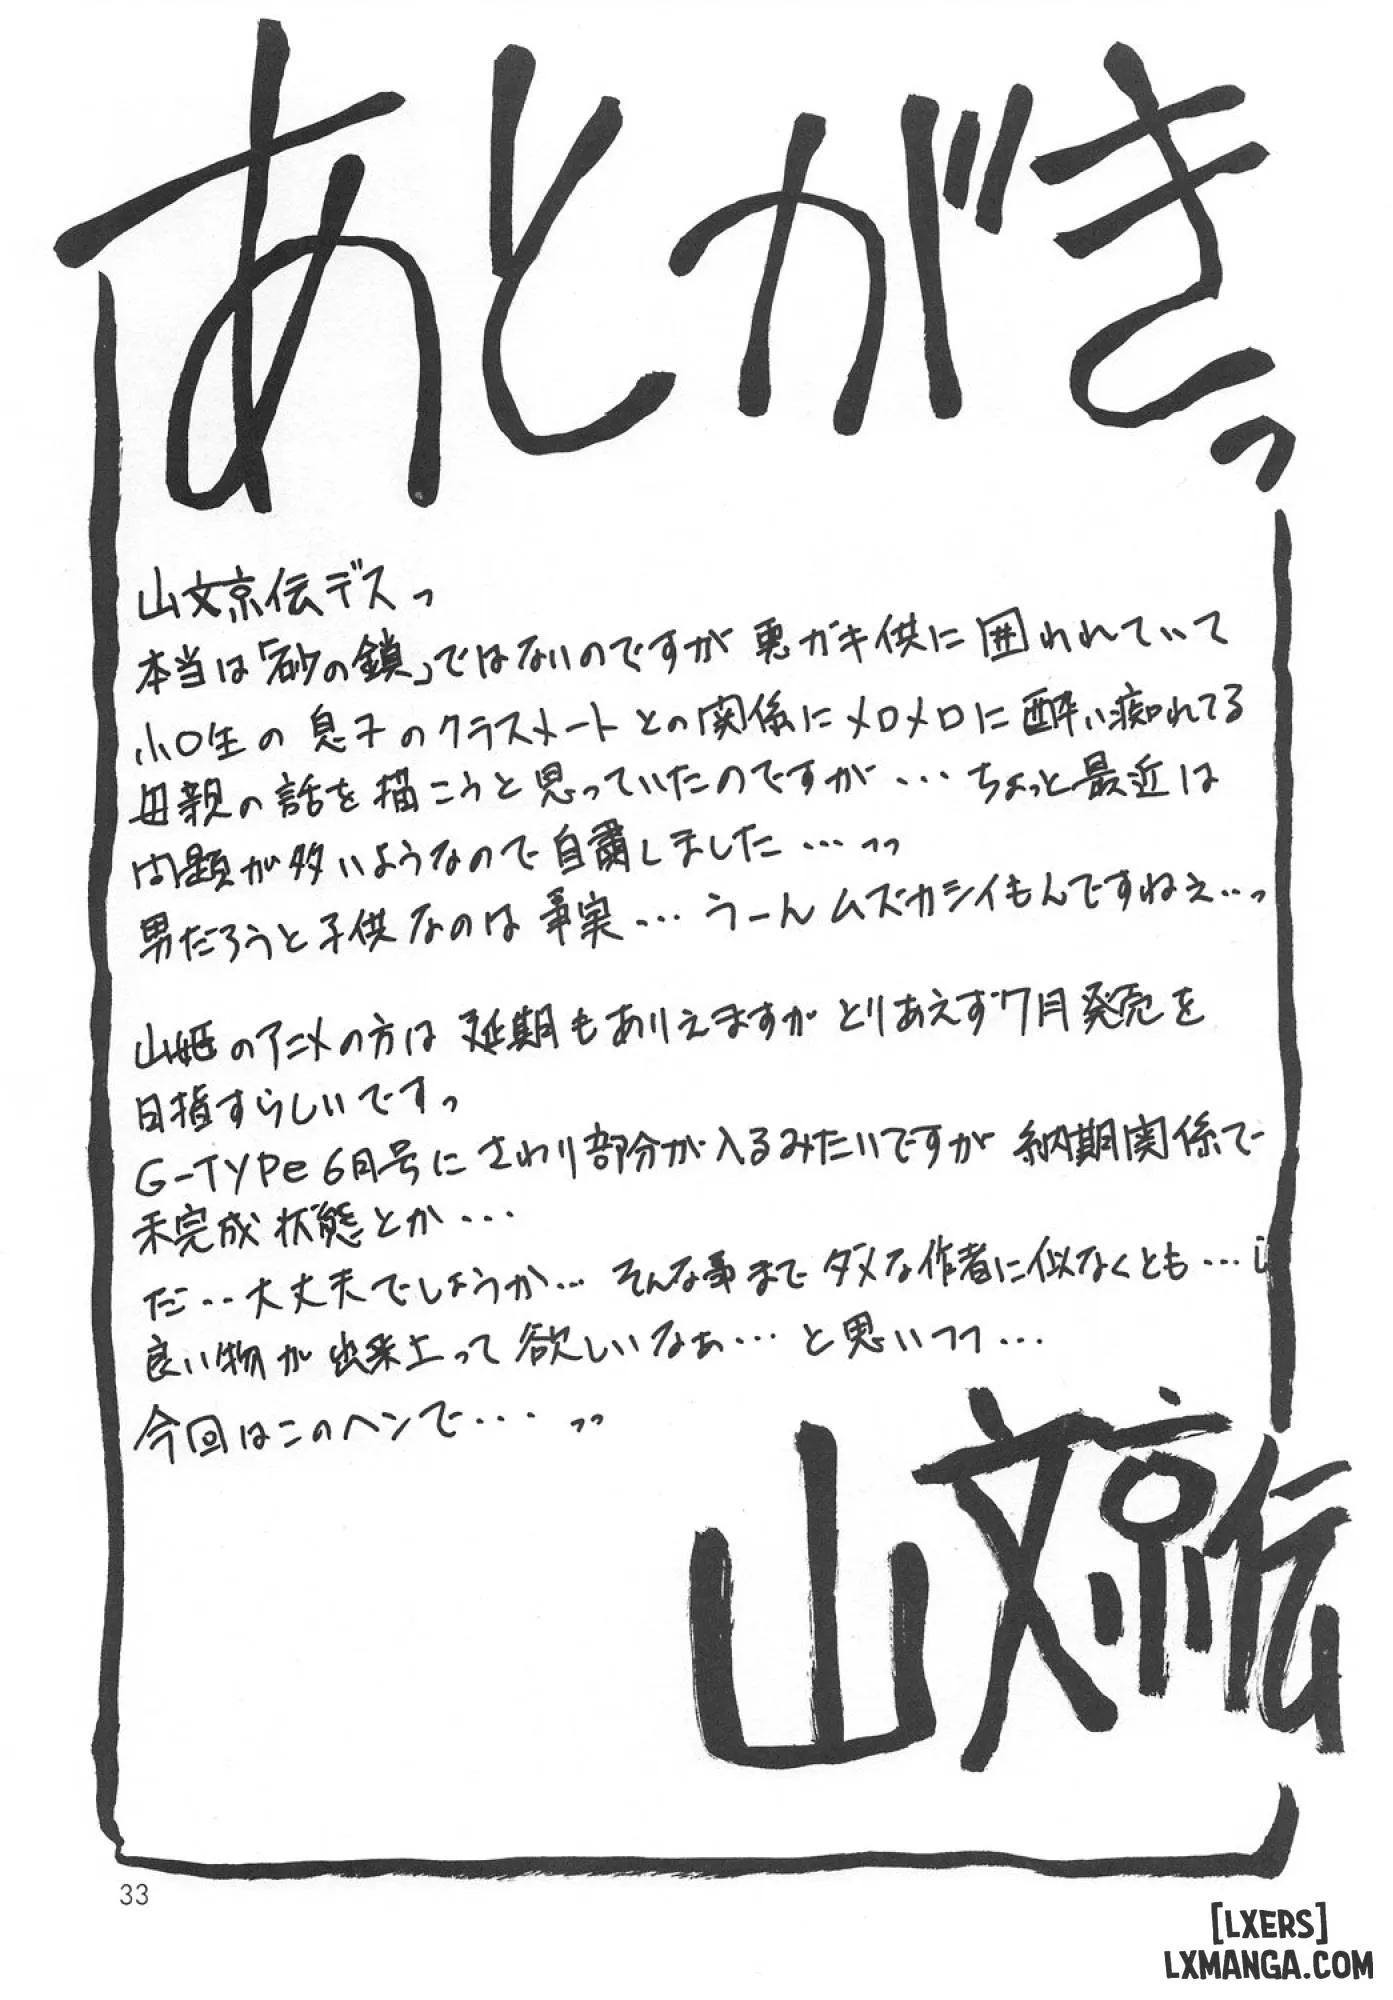 あとがきっ
山文京伝デスっ
本当は「砂の鎖」ではないのですが悪ガキ供に囲われていて
小〇生の息子のクラスメートとの関係にメロメロに酔い痴れてる
母親の話を描こうと思っていたのですが・・・ちょっと最近は
問題が多いようなので自粛しました・・・っっ
男だろうと子供なのは事実・・・うーんムズカシイもんですねぇ・・・っ
山姫のアニメの方は延期もありえますがとりあえず7月発売を
目指すらしいですっ
G-TYPe6月号にさわり部分が入るみたいですが納期関係で
未完成状態とか・・・
だ・・大丈夫でしょうか・・・そんな事までダメな作者に似なくとも・・・
良い物が出来上って欲しいなぁ・・・と思いつつ・・・
今回はこのヘンで・・・っっ
山文京伝
33
[LXERS]
LXMANGA.COM